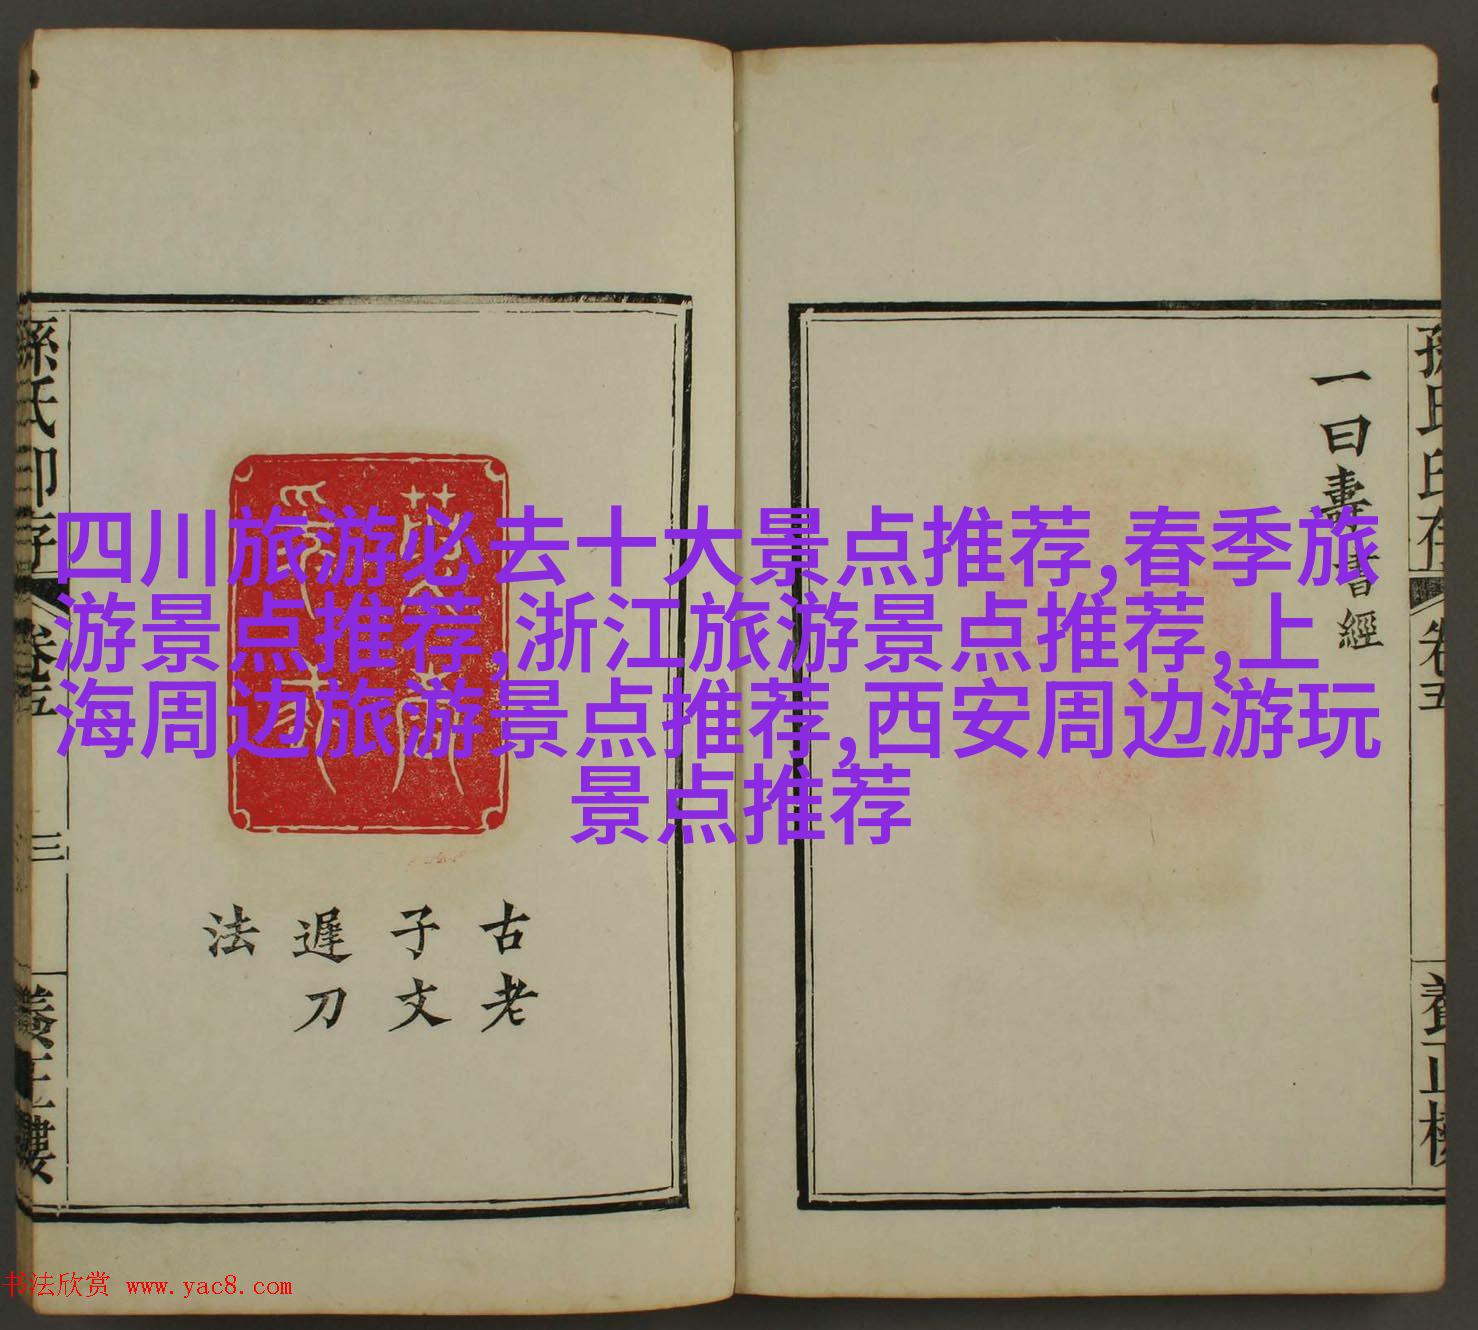 四川旅游必去十大景点推荐,春季旅
游景点推荐,浙江旅游景点推荐,上
海周边旅游景点推荐,西安周边游玩
景点推荐
一曰壽書經
孫氏印存
卷五
養正樓
古老
子文
遲刀
法
孫氏印存
卷五
三
養正樓
书法欣赏 www.yac8.com